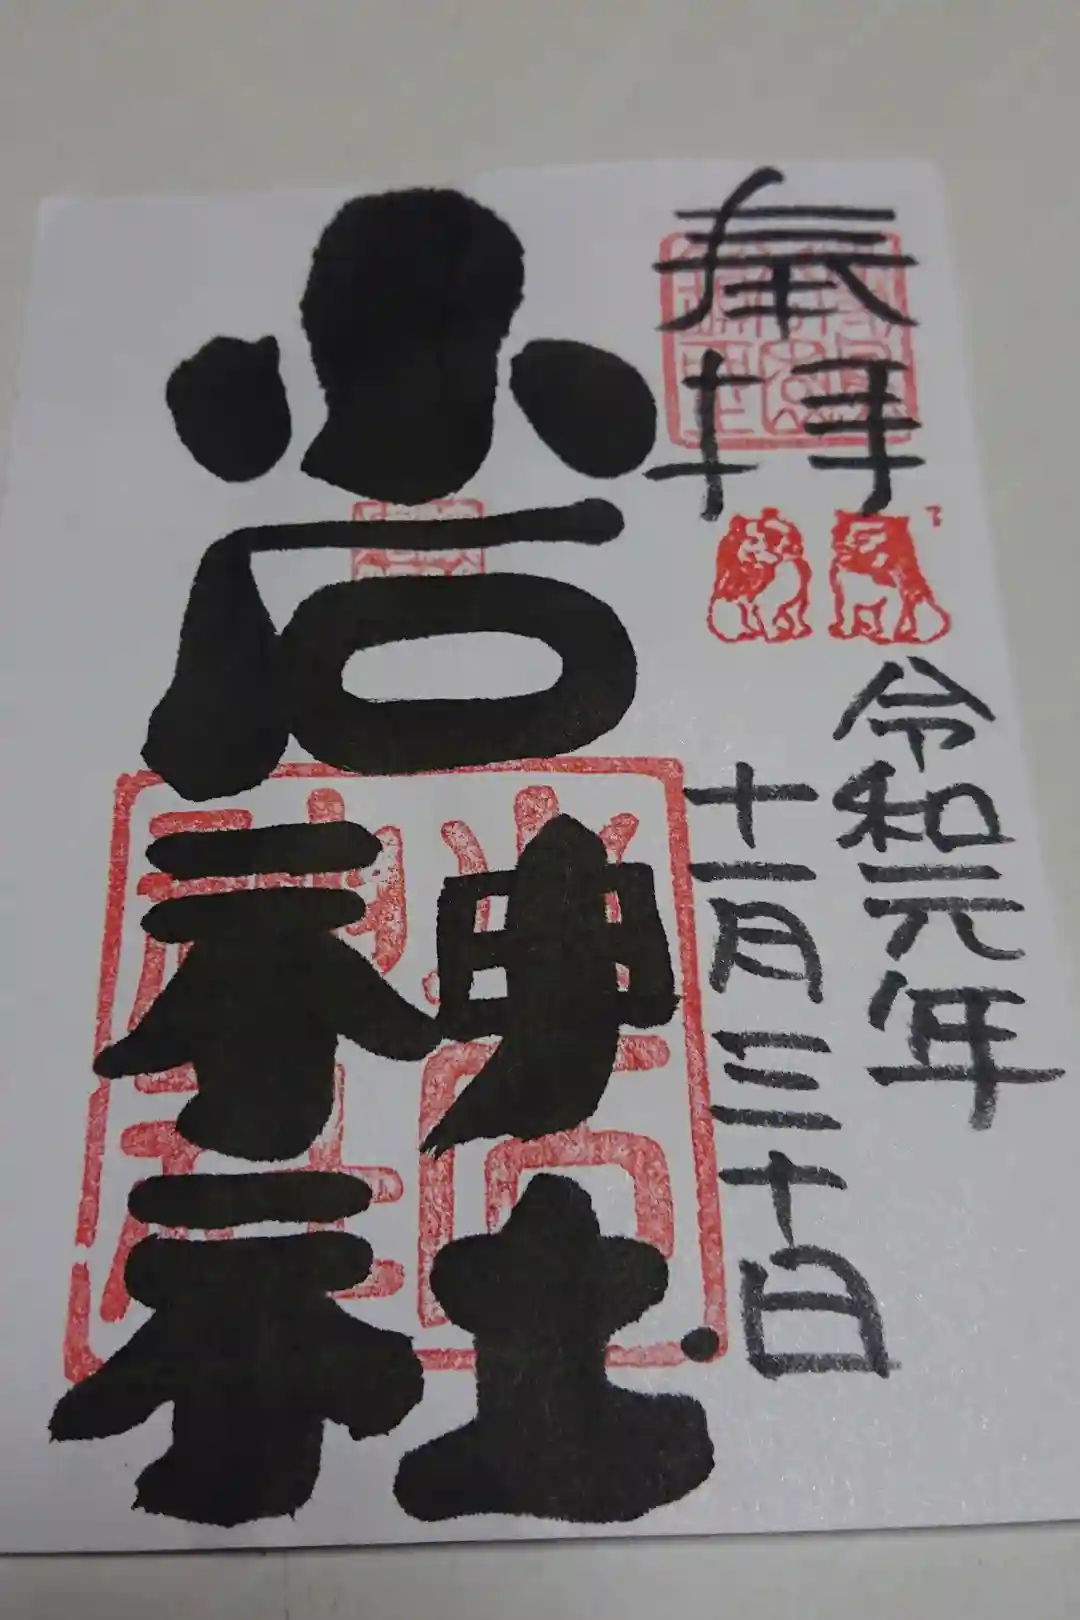 奉拝
令和元年
十一月三十日
小石神社